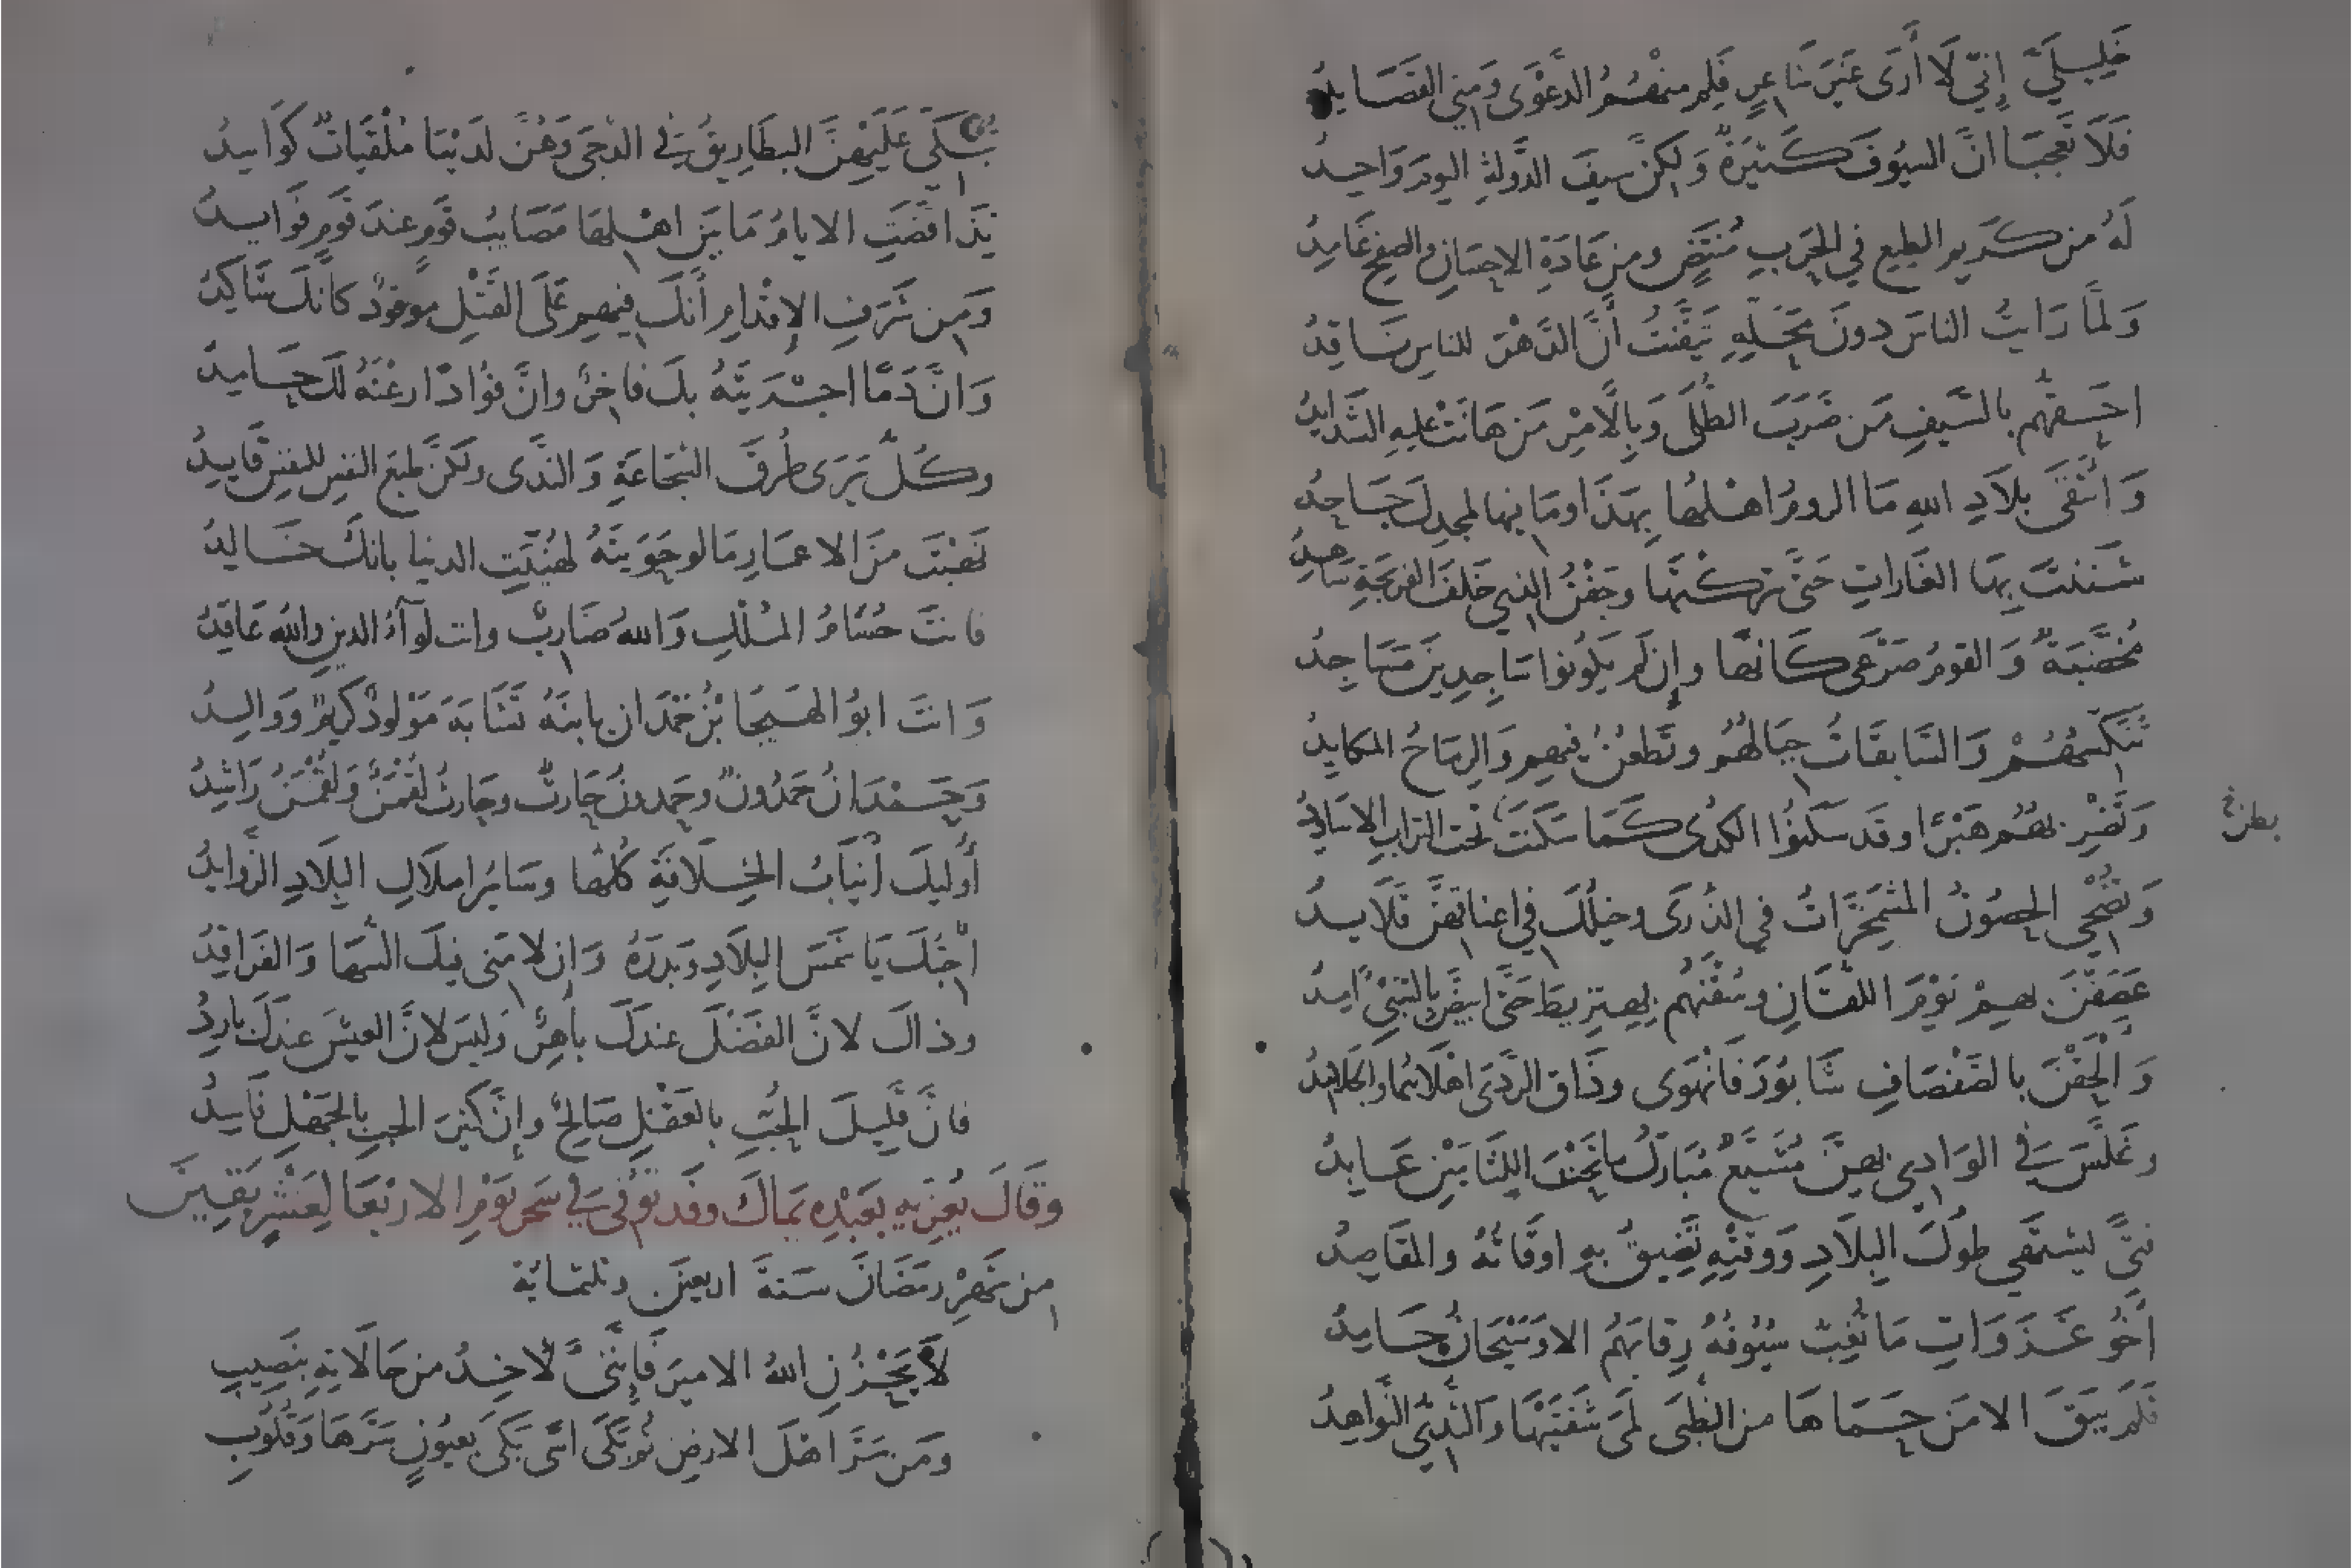 خَلِيلَيَّ إِنّي لَا أَرَى غَيْرَ شَاعِرٍ فَلِم منْهُمُ الدَّعْوَى وَمِنِي القَصَايدُ
فَلَا تَعجَبَا انَّ السيُوفَ كَثيَرةٌ وَلكِنَّ سيفَ الدَّولةِ اليومَ وَاحِدُ
لَهُ من كَرِيمِ الطبعِ في الحَربِ مُنتَضٍ ومِن عَادَةِ الاحسَانِ والصفحِ غَامِدُ
وَلمَّا رَايتُ الناسَ دونَ مَحَلِّهِ تَيَقَّنتُ أَنَّ الدَّهْرَ للناسِ نَاقِدُ
احَقهُّم بالسَّيفِ مَن ضَرَبَ الطُّلَى وَبِالأَمْرِ مَن هَانَتْ عليهِ الشدَايدُ
وَاشْقَى بلَادِ اللهِ مَا الرومُ اهْلُهَا بِهَذَا وَمَا فيها لمجدِكَ جَاحِدُ
شَنَنتَ بِهَا الغَاراتِ حَتَّى تركْتهَا وجَفْنُ الذي خَلفَ الفرنجَةِ سَاهِدُ
مُخَضَّبَةٌ وَالقومُ صَرْعَى كَانهَّا وإن لَم يَكُونوا سَاجِدِينَ مَسَاجِدُ
تُنَكِّسُهُمْ وَالسَّابقَاتُ جِبَالُهُم وتَطعُنُ فيهِم وَالرِمَاحُ المكايدُ
وَتَضْرِبُهُم هَبْرًا وقَد سَكَنُوا الكُدَى كَمَا سَكَنَتْ بَطنَ التراَبِ الاسَاوِدُ
وَتُضْحِي الحصُونُ المشمَخِرَّاتُ في الذُرَى وخيلُكَ في اعناقهِنَّ قَلَايدُ
عَصَفْنَ بهِمْ يَوْمَ اللقَانِ وسُقْنَهُم بِهِنزِيطَ حَتَّى ابيَضَّ بالسَّبْيِ امِدُ
وَأَلْحَقْنَ بالصَفْصَافِ سَابُورَ فَانْهَوَى وذَاقَ الرَّدَى اهْلَاهُما وَالجَلَامِدُ
وغَلَّسَ في الوَادِي بهِنَّ مُشَيَّعٌ مُبَارَكُ مَا تَحْتَ اللِثَامَيْنِ عَابِدُ
فتًى يشتَهي طولَ البِلَادِ وَوَقتِهِ تَضِيقُ بهِ اوقَاتُهُ والمقَاصِدُ
أخُو غَزَوَاتٍ مَا تُغِبُّ سيُوفُهُ رِقابَهُمُ الا وَسَيْحَانُ جَامِدُ
فَلَم يَبقَ الا مَن حَمَاهَا من الظُبَى لَمَى شَفَتَيْهَا وَالثُّدِيُّ النَّوَاهِدُ
بطن
تُبَكّي عَلَيْهِنَّ البطَارِيقُ في الدجَى وَهُنَّ لدَيْنَا مُلْقَيَاتٌ كَوَاسِدُ
بِذَا قضَتِ الايامُ مَا بَيْنَ اهْلِهَا مَصَايبُ قَومٍ عندَ قَومٍ فَوَايدُ
وَمِن شَرَفِ الإقْدَامِ أَنكَ فيهِم عَلَى القَتْلِ مومُوقٌ كَانكَ شَاكِدُ
وَانَّ دَمًا اجْرَيتَهُ بكَ فَاخِرٌ وانَّ فُؤادًا رعْتَهُ لكَ حَامِدُ
وكُلٌّ يَرَى طُرقَ الشجَاعَةِ وَالندَى ولكنَّ طبعَ النفسِ للنفسِ قَايدُ
نَهَبْتَ منَ الاعمَارِ مَا لو حَوَيتَهُ لهُنِّئَتِ الدنيا بانكَ خَالدُ
فَانتَ حُسَامُ المُلْكِ وَاللهُ ضَارِبٌ وانت لوَآءُ الدينِ واللهُ عَاقدُ
وَانتَ ابوُ الهَيجَا بْنُ حَمْدَان يا بنَهُ تَشَابَهَ مَوْلودٌ كَرِيمٌ ووَالِدُ
وَحَمْدَانُ حَمدُونٌ وحَمدونُ حَارثٌ وحَارثُ لُقْمَنٌ وَلُقْمَنُ رَاشِدُ
أُولئِكَ أَنيَابُ الخِلَافَةِ كُلُّهَا وسَايرُ املَاكِ البِلَادِ الزوَايدُ
أُحِبُّكَ يَا شَمسَ البِلَادِ وَبَدرَهُ وَإن لَامَني فيكَ السُّهَا وَالفَرَاقِدُ
وذَاكَ لانَّ الفَضْلَ عندَكَ بَاهِرٌ وَليسَ لانَّ العيشَ عندَكَ بارِدُ
فَانَّ قَلِيلَ الحُبِّ بالعَقْلِ صَالحٌ وإنَّ كَثيرَ الحبِّ بالجَهْلِ فَاسِدُ
وَقَالَ يُعَزِّيهِ بعَبْدِهِ يَمَاكَ وقَد تُوُفيَ في سَحَرِ يَوْمِ الاربَعَا لِعَشْرٍ بَقِينَ
مِن شَهْرِ رمَضَانَ سَنةَ اربعينَ وثلثمائة
لَا يُحْزِنِ اللهُ الامِيرَ فَإِنَّنِي لَآخِذُ من حَالَاتِهِ بِنَصِيبِ
وَمَن سَرَّ اهْلَ الارضِ ثُمَّ بَكَى اسًى بَكَى بعيُونٍ سَرَّهَا وَقُلُوبِ